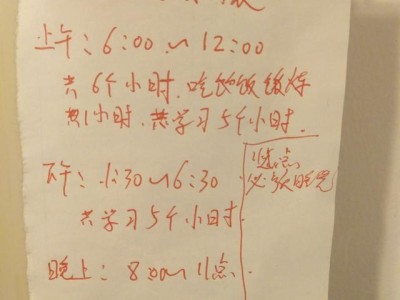 上午：6:00~12:00
共6个小时、吃饭饭锻炼
共1小时、共学习5个小时.
下午：1:30~6:30
共学习5个小时.
晚上：8:00~11点.
11点
必须睡觉